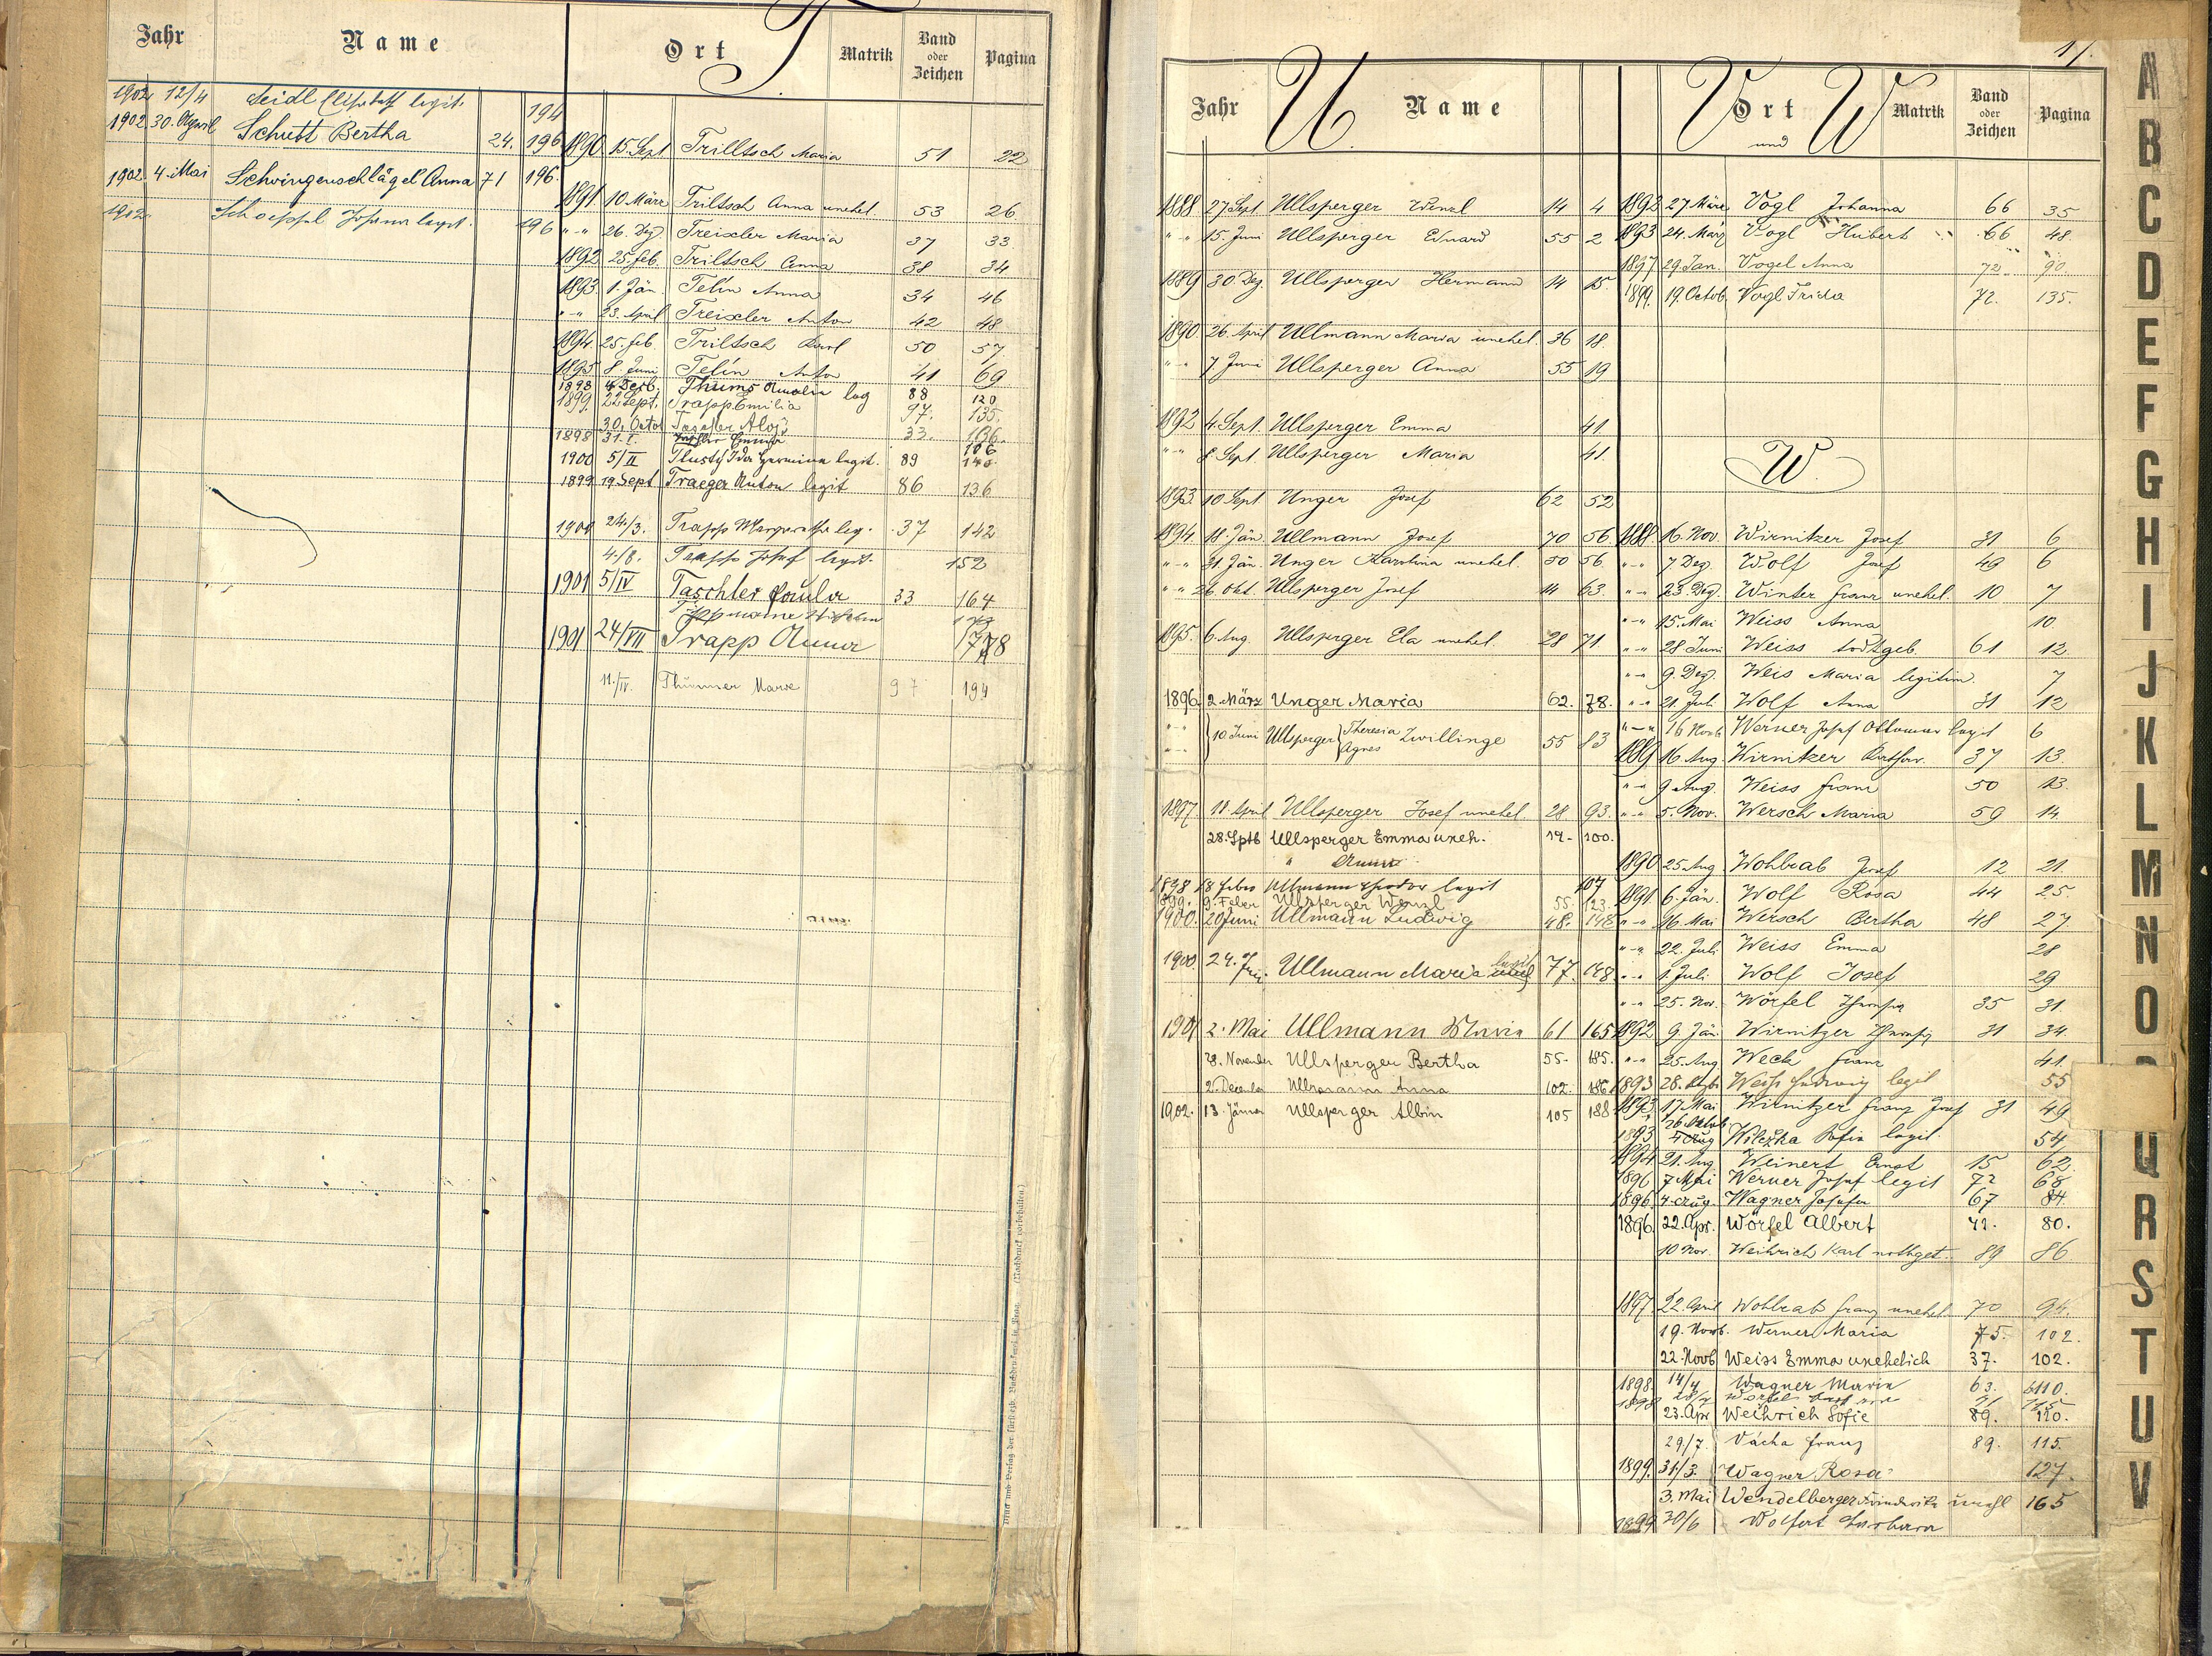 Jahr Name Ort T Matrik Band oder Zeichen Pagina
1902 12/4 Seidl Elisabeth legit. 194
1902 30. April Schutt Bertha 24. 196
1902 4. Mai Schwingenschlägel Anna 71 196.
1902. Josefina legit. 196
1890 15. Sept Trilltsch Maria 51 22
1891 10 März Triltsch Anna unehel. 53 26
" " 26. Dez. Treixler Maria 37 33.
1892 25. feb. Triltsch Anna 38 34
1893 1. Jän. Telin Anna 34 46
" " 23. April Treixler Anton 42 48
1894. 25. feb. Triltsch Karl 50 57.
1895 8. Juni Telin Anton 41 69
1898 4 Dezb. Thums Amalia leg 88 120
1899. 22 Sept. Trapp Emilia 97. 135.
30. Octob Taschler Alois 33. 136.
1898 31. I. 106
1900 5/II Tlustý Ida Hermina legit. 89 140.
1899 19 Sept Traeger Anton legit 86 136
1900 24./3. Trapp Margarethe leg. 37 142
4./8. Trapp Josef legit. 152
1901 5/IV Taschler Paula 33 164
1901 24/VII Trapp Anna 178
11./IV. Thümmer Marie 97 194
Druck und Verlag der fürsterzb. Buchdruckerei in Prag. (Nachdruck vorbehalten.)
17.
Jahr U. Name V und W Ort Matrik Band oder Zeichen Pagina
1888 27 Sept. Ullsperger Wenzl 14 4
" " 15. Juni Ullsperger Eduard 55 2
1889 30. Dez. Ullsperger Hermann 14 15.
1890. 26. April Ullmann Maria unehel. 36 18.
" " 7 Juni Ullsperger Anna 55 19
1892 4. Sept. Ullsperger Emma 41.
" " 8 Sept. Ullsperger Maria 41.
1893. 10 Sept Unger Josef 62 52
1894. 18. Jän. Ullmann Josef 70 56
" " 31. Jän. Unger Karolina unehel. 50 56
" " 26 Okt. Ullsperger Josef 14 63.
1895. 6. Aug. Ullsperger Ela unehel. 28 71.
1896. 2 März Unger Maria 62. 78.
" " 10 Juni Ullsperger Theresia Agnes Zwillinge 55 83
1897. 18. April Ullsperger Josef unehel. 28 93.
28. Sptb Ullsperger Emma uneh. 14. 100.
" Anna
1898 18 febr Ullmann Theodor legit 107
1899. 9. Feber Ullsperger Wenzl 55. 123.
1900. 20 Juni Ullmann Ludwig 48. 148
1900 24. Ullmann Maria legit unehl 77. 148
1901 2. Mai Ullmann Maria 61 165
28. November Ullsperger Bertha 55. 185.
2. December Ullmann Anna 102. 186
1902. 13. Jänner Ullsperger Albin 105 188
1892 27 März Vogl Johanna 66 35
1893 24. März Vogl Hubert 66 48.
1897 29. Jan. Vogel Anna 72 90
1899. 19. Octob. Vogl Frida 72. 135.
W.
1888. 16. Nov. Wirnitzer Josef 31 6
" " 7 Dez. Wolf Josef 49 6
" " 23. Dez. Winter franz unehel. 10 7
" " 15. Mai Weiss Anna 10.
" " 28 Juni Weiss todtgeb. 61 12.
" " 9. Dez. Weis Maria legitim. 7
" " 21. Juli Wolf Anna 31 12
" " 16 Novb Werner Josef Ottomar legit 6
1889 16. Aug. Wirnitzer Barbara 37 13.
" " 9 Aug. Weiss franz 50 13.
" " 5. Nov. Wersch Maria 59 14.
1890 25. Aug. Wohlrab Josef 12 21.
1891. 6. Jän. Wolf Rosa 44 25.
" " 16. Mai Wersch Bertha 48 27
" " 22. Juli Weiss Emma 28
" " 1. Juli Wolf Josef 29
" " 25. Nov. Wörfel 35 31.
1892 9. Jän. Wirnitzer 31 34.
" " 25. Aug Weck franz 41.
1893 28. Weiß Ludwig legit 55
1893. 17. Mai Wirnitzer Franz Josef 31 49
1893 Wilczka Sofie legit. 54
1894 21. Aug. Weinert Ernst 15 62.
1896 7 Mai Werner Josef legit 72 68
1896. 4. Aug. Wagner Josefa 67 84.
1896. 22. Apr. Wörfel Albert 41. 80.
10 Nov. Weihrich Karl nothget. 89 86
1897. 22. April Wohlrab franz unehel. 70 94.
19. Novb. Werner Maria 75. 102.
22. Novb Weiss Emma unehelich 37. 102.
1898. 14/4 Wagner Maria 63. 110.
23. Apr Weihrich Sofie 89. 110.
29/7. Vácha franz 89. 115.
1899. 31/3. Wagner Rosa 127.
3. Mai Wendelberger unehl 165
1899 30/6 Wolfert Barbara
A
B
C
D
E
F
G
H
I
J
K
L
M
N
O
Q
R
S
T
U
V